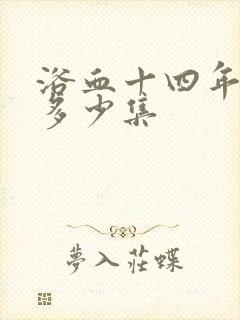 浴血十四年
多少集
夢入莊蝶